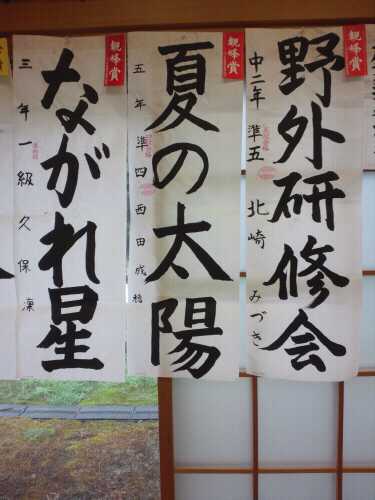 親峰賞
野外研修会
中二年 準五 北崎 みづき
親峰賞
夏の太陽
五年 準四 西田成
親峰賞
ながれ星
三年 一級 久保凜